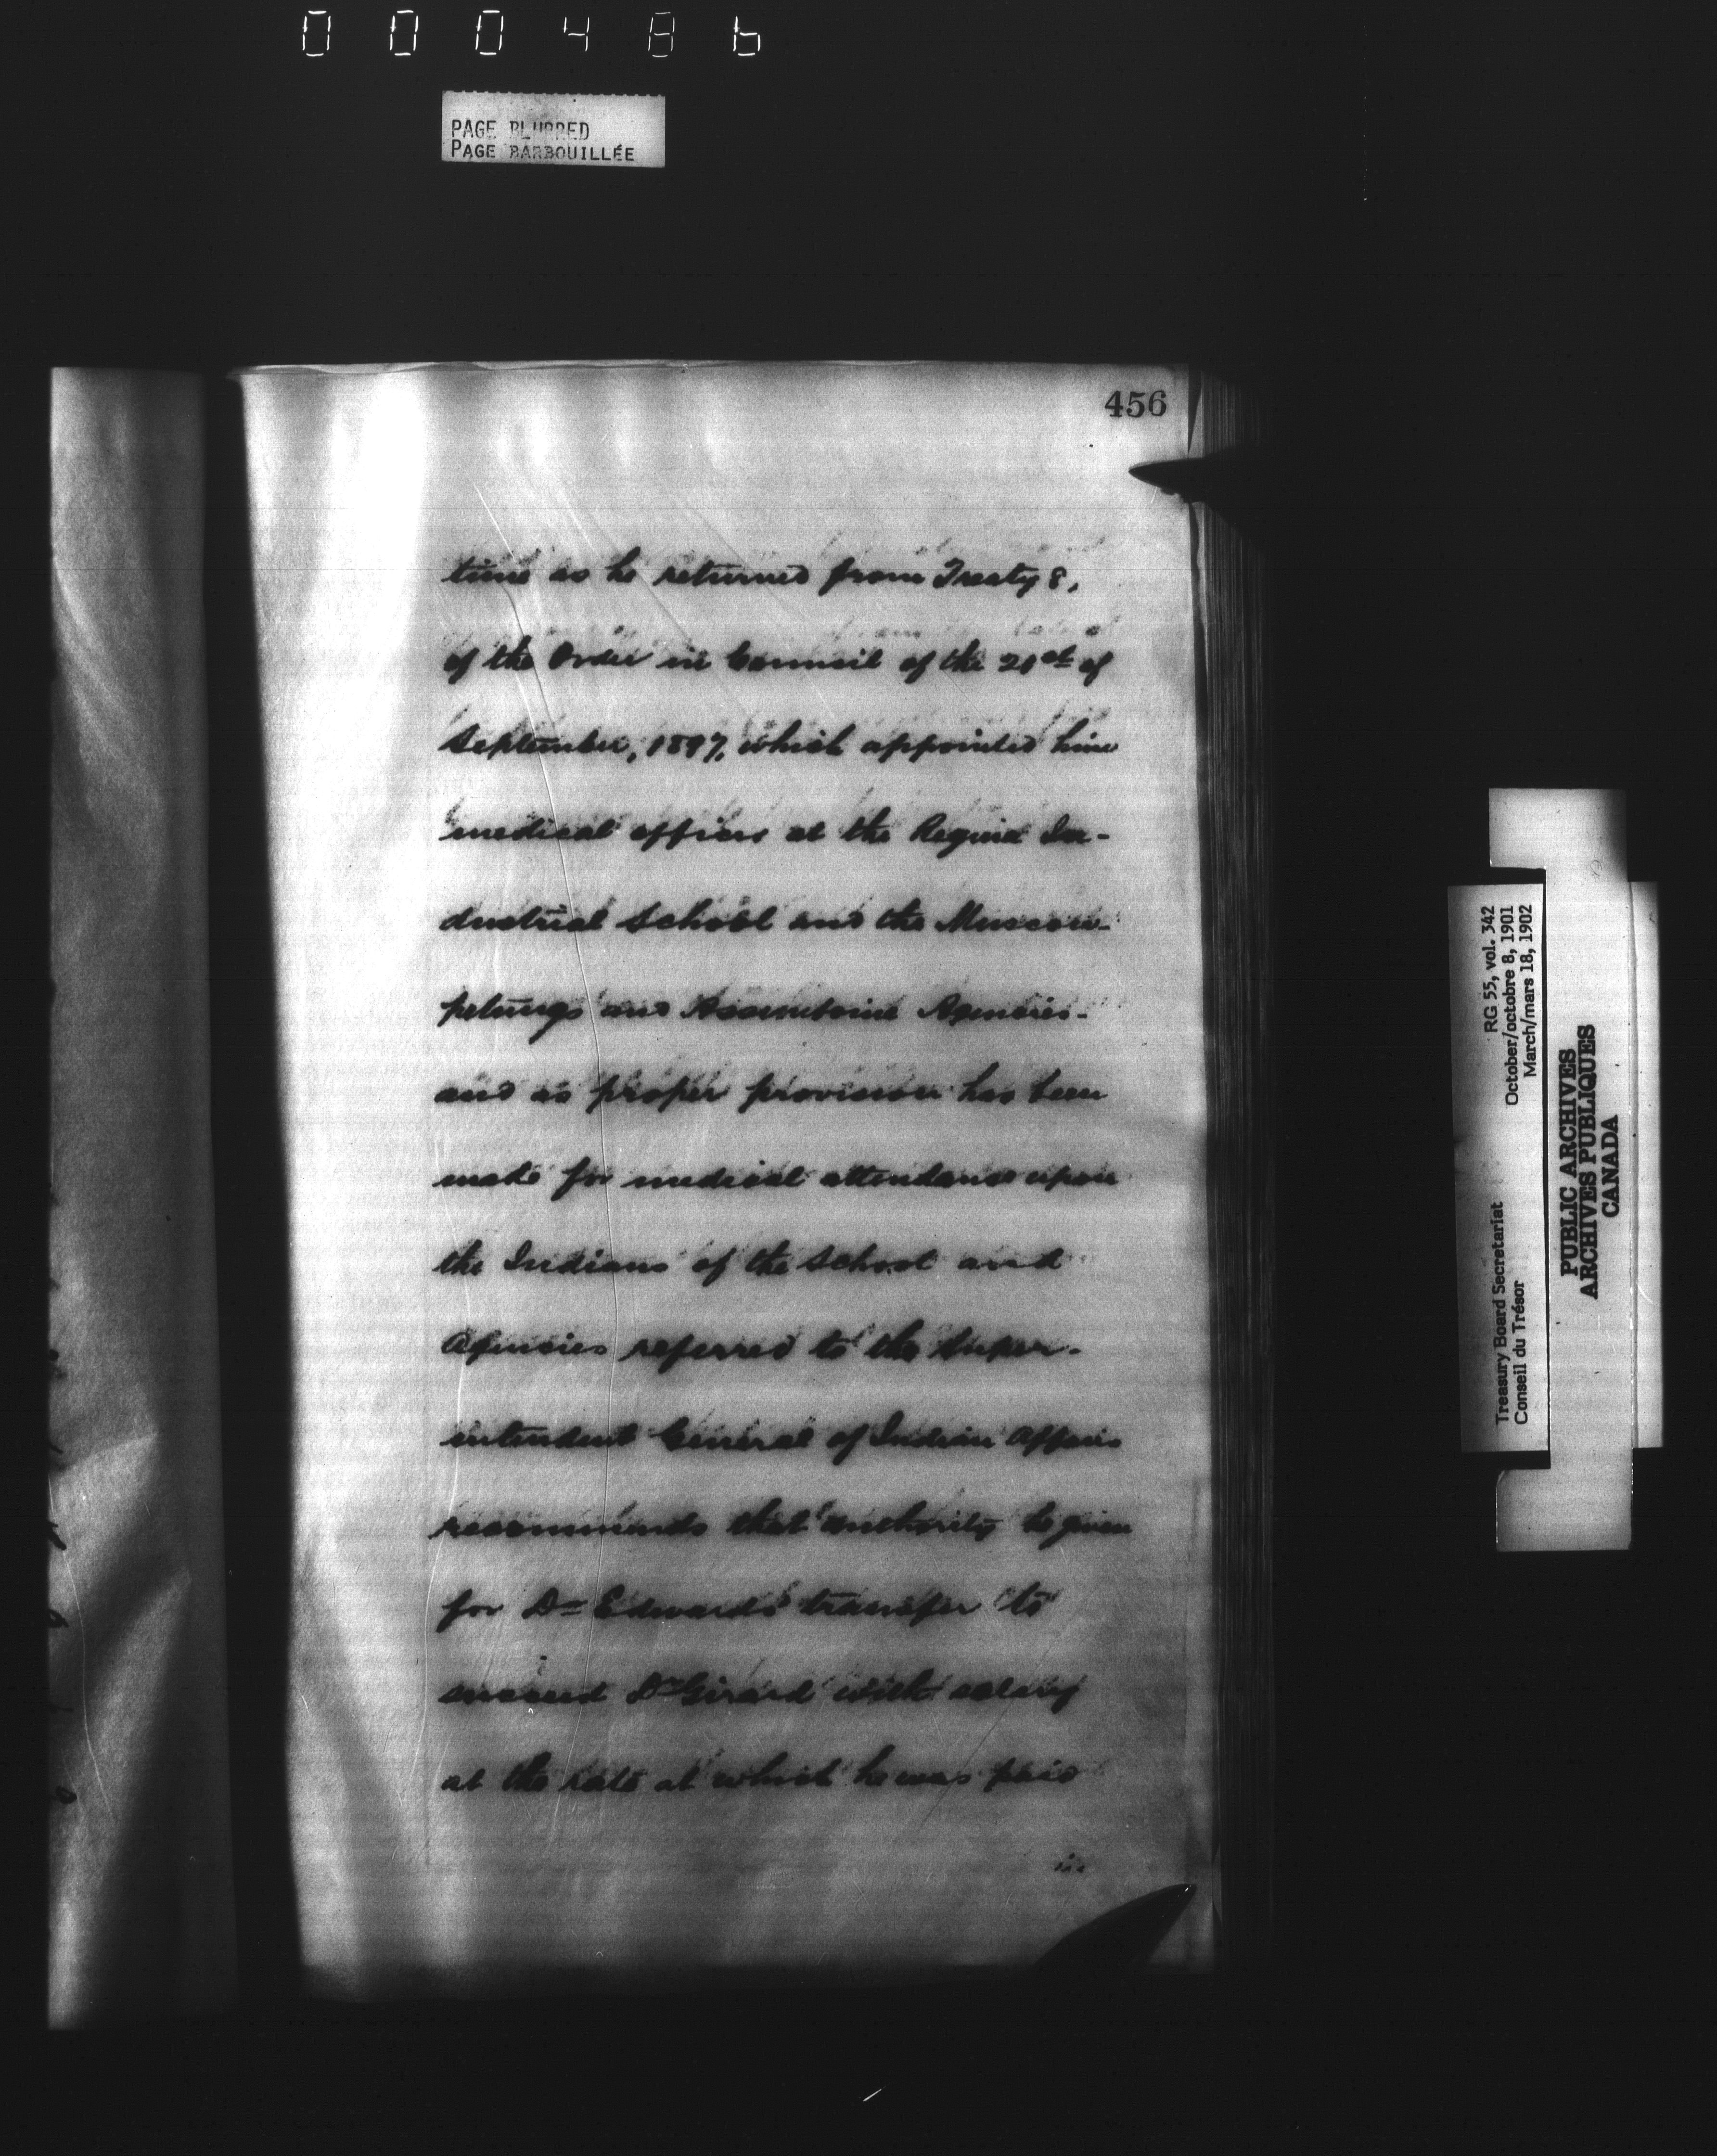 000486
PAGE BLURRED
PAGE BARBOUILLÉE
456
time as he returned from Treaty 8,
of the Order in Council of the 21st of
September, 1897, which appointed him
medical officer at the Regina In-
dustrial School and the Muscow-
petungs and Assiniboine Agencies.
and as proper provision has been
made for medical attendance upon
the Indians of the School and
Agencies referred to the Super-
intendent General of Indian Affairs
recommends that authority be given
for Dr Edwards' transfer to
succeed Dr Girard with salary
at the rate at which he was paid
in
RG 55, vol. 342
October/octobre 8, 1901
March/mars 18, 1902
Treasury Board Secretariat
Conseil du Trésor
PUBLIC ARCHIVES
ARCHIVES PUBLIQUES
CANADA